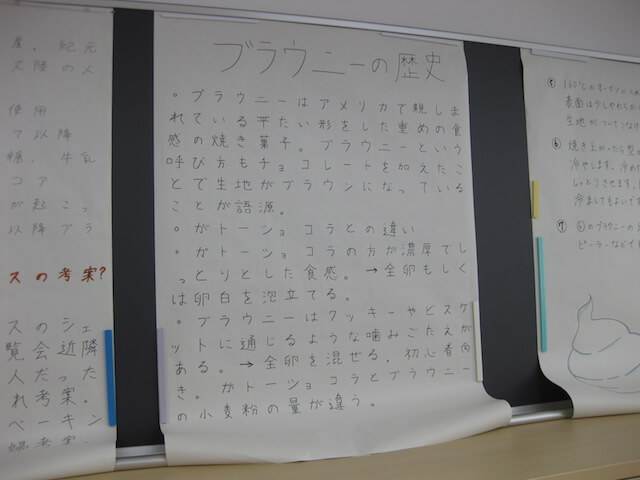 産、紀元
大陸の人
使用
ア以降
糖、牛乳
コア
が起こっ
以降ブラ
スの考案?
スのシェ
覧会近隣
人だった
れ考案。
ベーキン
ブラウニーの歴史
。ブラウニーはアメリカで親しま
れている平たい形をした重めの食
感の焼き菓子。ブラウニーという
呼び方もチョコレートを加えたこ
とで生地がブラウンになっている
ことが語源。
。ガトーショコラとの違い
。ガトーショコラの方が濃厚でし
っとりとした食感。→全卵もしく
は卵白を泡立てる。
。ブラウニーはクッキーやビスケ
ットに通じるような噛みごたえが
ある。→全卵を混ぜる。初心者向
き。ガトーショコラとブラウニー
の小麦粉の量が違う。
表面は少しやわらか
生地がついてこなけ
⑥ 焼き上がったら型
冷やします。冷めて
しっとりさせます。
冷ましてもよいです
⑦ ⑥のブラウニーの上
ピーラーなどで